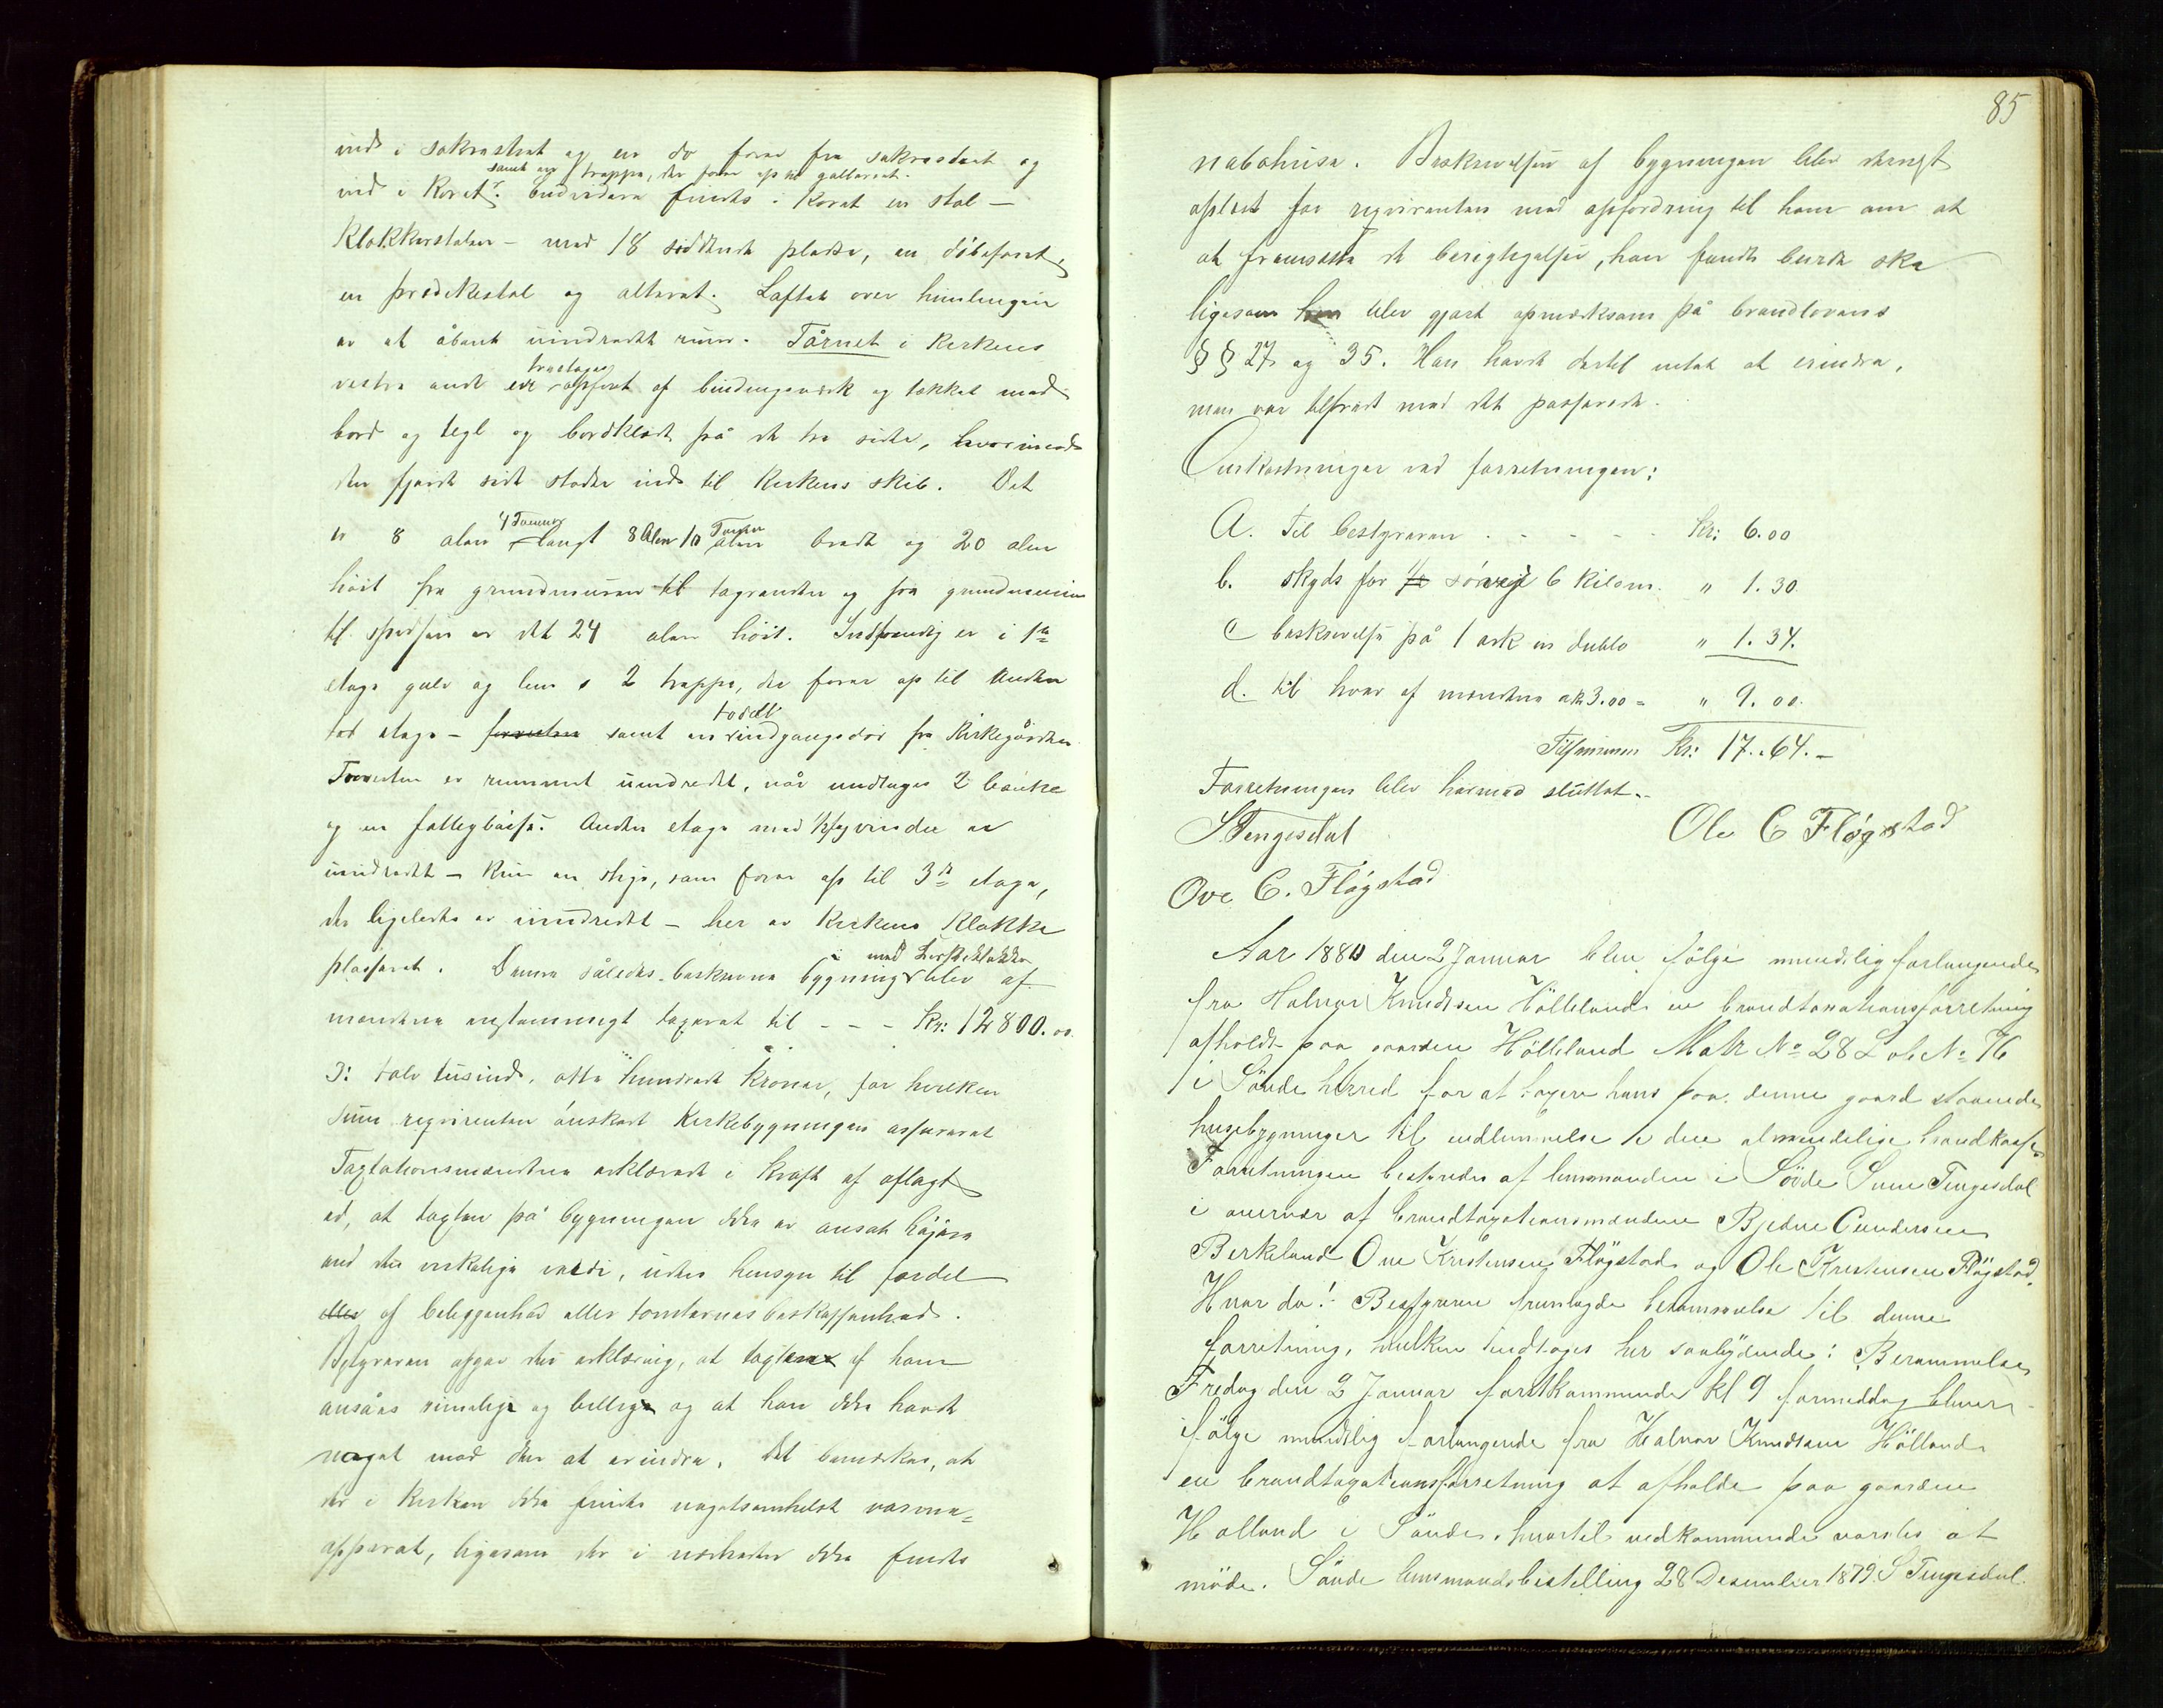 ind i sakrastiet og en do fører fra sakrastiet og
samt en trappe, der fører op til galleriet.
ind i Koret. Endvidere findes i Koret en stol —
Klokkerstolen — med 18 siddende pladse, en döbefont,
en prædikestol og alteret. Loftet over himlingen
er et åbent uindredet rum. Tårnet i Kirkens
treetages
vestre ende er opført af bindingsværk og tækket med
bord og tegl og bordklædt på de tre sider, hvorimod
den fjerde side stöder ind til Kirkens skib. Det
4 Tommer Tommer
er 8 alen langt 8 Alen 10 alen bredt og 20 alen
höit fra grundmuren til tagranden og fra grundmuren
til spidsen er det 24 alen höit. Indvendig er i 1ste
etage gulv og lem s 2 trappe, der fører op til anden
todelt
etage — samt en indgangsdör fra Kirkegården
Foroven er rummet uindredet, når undtages 2 bænke
og en fattigbösse. Anden etage med 1 fagvindu er
uindredet — Kun en stige, som fører op til 3de etage,
der ligeledes er uindredet — her er Kirkens Klokke
med Kirkeklokken
plasseret. Denne således beskrevne bygning blev af
mændene enstemmigt taxeret til - - - Kr: 12800.00
ɔ: tolv tusinde, otte hundrede Kroner, for hvilken
sum reqvirenten önskede Kirkebygningen assureret
Taxtationsmændene erklærede i Kraft af aflagt
ed, at taxten på bygningen ikke er ansat höjere
end den virkelige værdi, uden hensyn til fordel
eller af beliggenhed eller tomternes beskaffenhed.
Bestyreren afgav den erklæring, at taxten af ham
ansåes rimelig og billig og at han ikke havde
noget mod den at erindre. Det bemærkes, at
der i Kirken ikke findes nogetsomhelst varme-
apparat, ligesom der i nærheden ikke findes
85
nabohuse. Beskrivelsen af bygningen blev dernæst
oplæst for reqvirenten med opfordring til ham om at
at fremsætte de berigtigelser, han fandt burde ske
ligesom han blev gjort opmærksom på brandlovens
§ § 27 og 35. Han havde dertil intet at erindre,
men var tilfreds med det passerede.
Omkostninger ved forretningen:
A. Til bestyreren . - - - - Kr: 6.00
b. skyds for 6 Kilom. " 1.30
c beskrivelse på 1 ark in duplo " 1.34.
d. til hver af mændene a k 3.00 = " 9.00.
Tilsammen Kr: 17.64.—
Forretningen blev hermed sluttet.
S. Tengesdal Ole C Flögstad
Ove C. Flögstad
Aar 1880 den 2 Januar blev fölge mundtlig forlangende
fra Halvor Knudsen Hölleland en brandtaxationsforretning
afholdt paa gaarden Hölleland Matr No 28 Löb No 76
i Söude herred for at taxere hans paa denne gaard staaende
husebygninger til indlemmelse i den almindelige brandkasse
Forretningen bestyredes af lensmanden i Söude Sven Tengesdal
i overvær af brandtaxationsmændene Bjedne Gundersen
Birkeland Ove Kristensen Flögstad og Ole Kristensen Flögstad.
Hvor da! Bestyreren fremlagde berammelse til denne
forretning, hvilken indtages her saalydende: Berammelse
Fredag den 2 Januar förstkommende kl 9 formiddag bliver
ifölge mundtlig forlangende fra Halvor Knudsen Hölland
en brandtaxationsforretning at afholde paa gaarden
Hölland i Söude, hvortil vedkommende varsles at
möde. Söude lensmandsbestilling 28 Desember 1879. S Tengesdal.